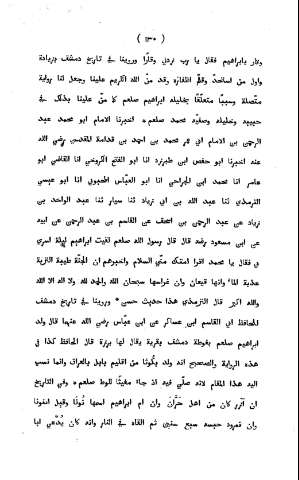 ( ١٣٠ )
وقار يا ابراهيم فقال يا رب زدنى وقارًا وروينا فى تاريخ دمشق بزيادة
واول من استحدّ وقلّم اظفاره وقد منّ الله الكريم علينا وجعل لنا رواية
متصلة وسببا متعلّقا بخليله ابراهيم صلعم كما منّ علينا بذلك فى
حبيبه وخليله وصفيّه محمد صلعم، اخبرنا الامام ابو محمد عبد
الرحمن بن الامام ابى عمر محمد بن احمد بن قدامة المقدسى رضى الله
عنه اخبرنا ابو حفص ابن طبرزد انا ابو الفتح الكروخى انا القاضى ابو
عامر انا محمد ابن الجراحى انا ابو العبّاس المحبوبى انا ابو عيسى
الترمذى ثنا عبد الله بن ابى زياد ثنا سيار ثنا عبد الواحد بن
زياد عن عبد الرحمن بن اسحق عن القاسم بن عبد الرحمن عن ابيه
عن ابن مسعود رضه قال قال رسول الله صلعم لقيت ابراهيم ليلة اسرى
بى فقال يا محمد اقرا امتك منّى السلام واخبرهم ان الجنّة طيبة التربة
عذبة الماء وانها قيعان وان غراسها سبحان الله والحمد لله ولا اله الا الله
والله اكبر قال الترمذى هذا حديث حسن، وروينا فى تاريخ دمشق
للحافظ ابى القاسم ابن عساكر عن ابن عبّاس رضى الله عنهما قال ولد
ابراهيم صلعم بغوطة دمشق بقرية يقال لها برزة قال الحافظ كذا فى
هذه الرواية والصحيح انه ولد بكُوثَا من اقليم بابل بالعراق وانما نسب
اليه هذا المقام لانه صلّى فيه اذ جاء مغيثًا للوط صلعم، وفى التاريخ
ان آزر كان من اهل حَرَّانَ وان ام ابراهيم اسمها نُونَا وقيل انمونا
وان نمرود حبسه سبع سنين ثم القاه فى النار وانه كان يُدْعَى ابا